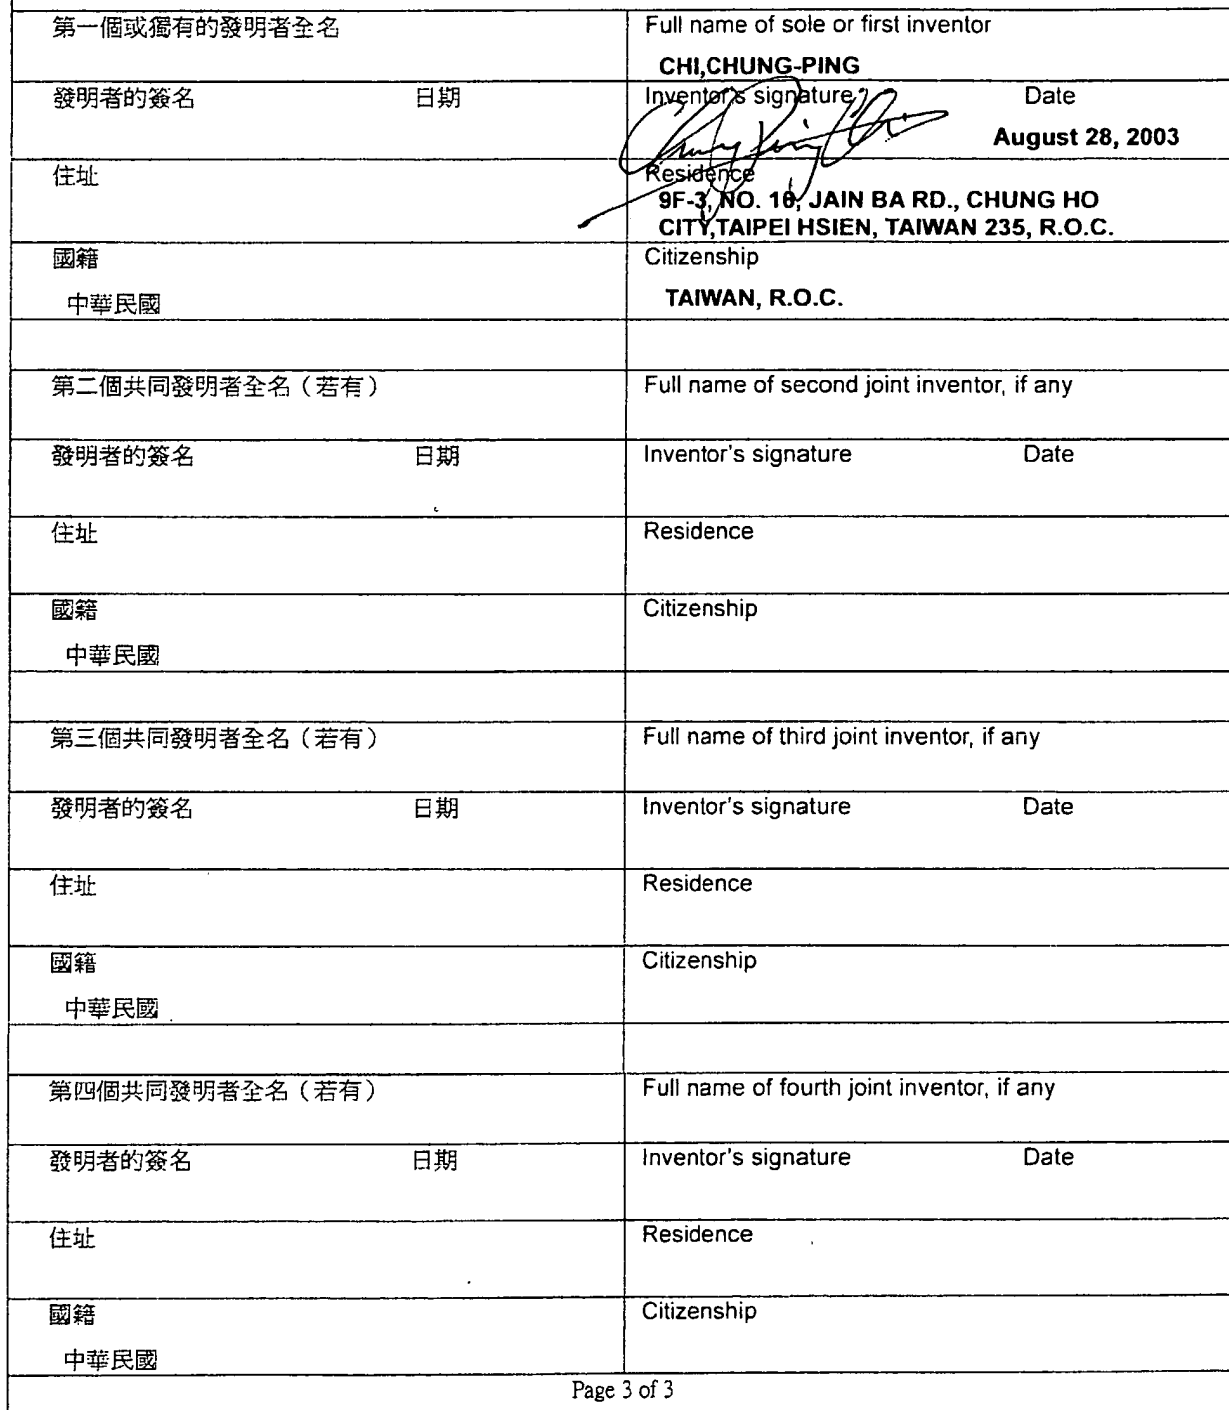 第一個或獨有的發明者全名
Full name of sole or first inventor
CHI,CHUNG-PING
發明者的簽名 日期
Inventor's signature Date
Chung Ping Chi
August 28, 2003
住址
Residence
9F-3, NO. 10, JAIN BA RD., CHUNG HO
CITY,TAIPEI HSIEN, TAIWAN 235, R.O.C.
國籍
Citizenship
中華民國
TAIWAN, R.O.C.
第二個共同發明者全名（若有）
Full name of second joint inventor, if any
發明者的簽名 日期
Inventor's signature Date
住址
Residence
國籍
Citizenship
中華民國
第三個共同發明者全名（若有）
Full name of third joint inventor, if any
發明者的簽名 日期
Inventor's signature Date
住址
Residence
國籍
Citizenship
中華民國
第四個共同發明者全名（若有）
Full name of fourth joint inventor, if any
發明者的簽名 日期
Inventor's signature Date
住址
Residence
國籍
Citizenship
中華民國
Page 3 of 3